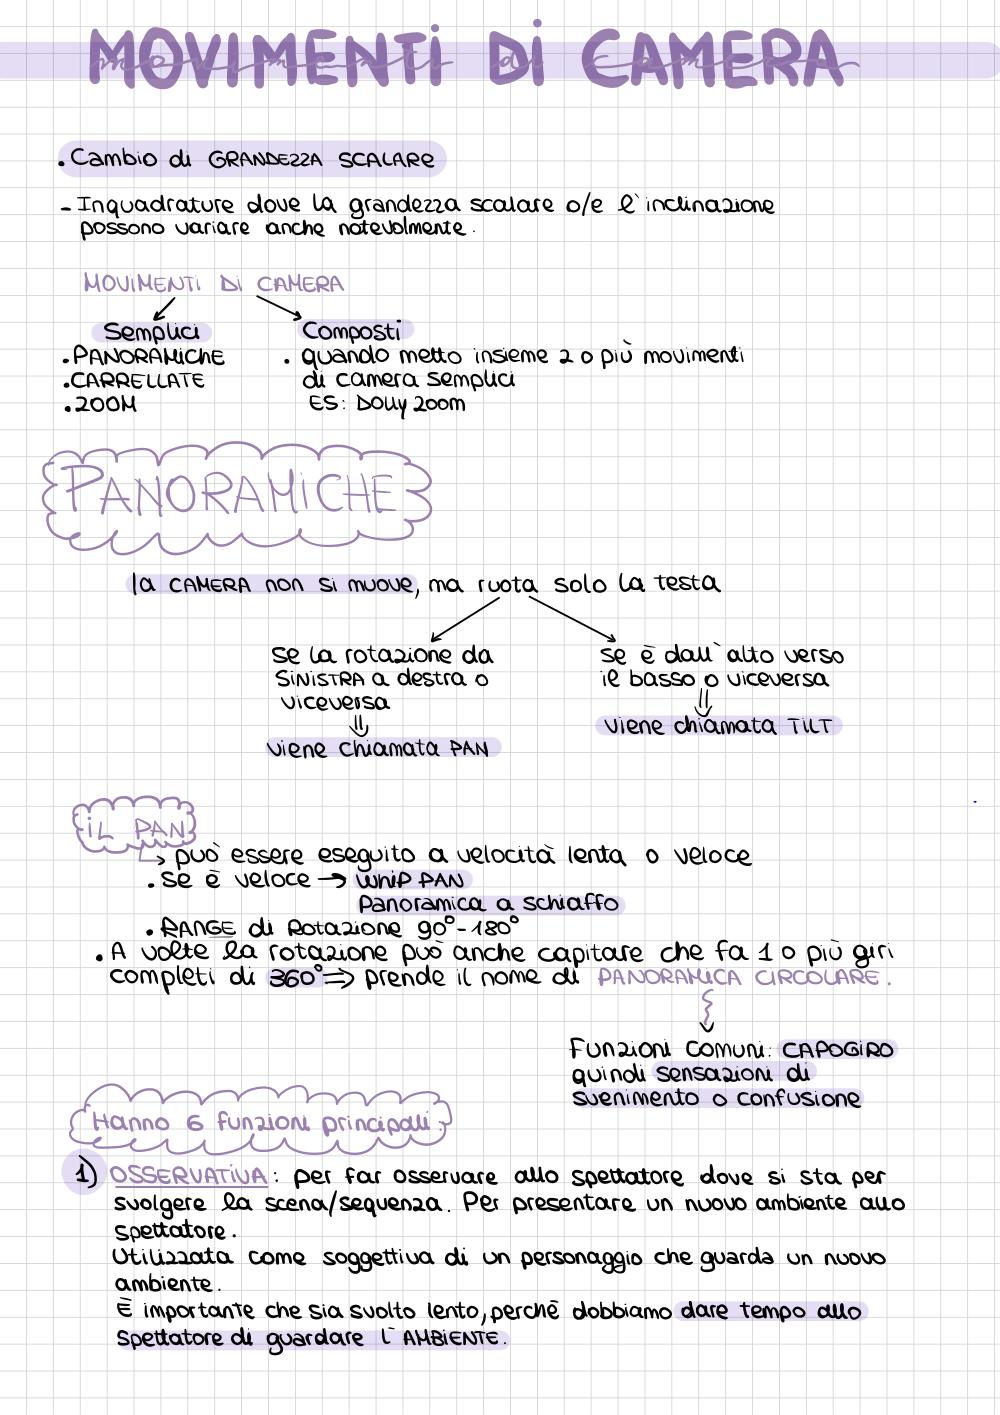 MOVIMENTI DI CAMERA
movimenti di camera
. Cambio di GRANDEZZA SCALARE
- Inquadrature dove la grandezza scalare o/e l'inclinazione
possono variare anche notevolmente.
MOVIMENTI DI CAMERA
Semplici
. PANORAMICHE
. CARRELLATE
. ZOOM
Composti
. quando metto insieme 2 o più movimenti
di camera semplici
ES: DOLLY ZOOM
PANORAMICHE
la CAMERA non si muove, ma ruota solo la testa
se la rotazione da
SINISTRA a destra o
viceversa
⇓
viene chiamata PAN
se è dall'alto verso
il basso o viceversa
⇓
viene chiamata TILT
iL PAN
↳ può essere eseguito a velocità lenta o veloce
. se è veloce → WHIP PAN
Panoramica a schiaffo
. RANGE di Rotazione 90°-180°
. A volte la rotazione può anche capitare che fa 1 o più giri
completi di 360° ⇒ prende il nome di PANORAMICA CIRCOLARE.
Funzioni comuni: CAPOGIRO
quindi sensazioni di
svenimento o confusione
Hanno 6 funzioni principali:
1) OSSERVATIVA: per far osservare allo spettatore dove si sta per
svolgere la scena/sequenza. Per presentare un nuovo ambiente allo
spettatore.
Utilizzata come soggettiva di un personaggio che guarda un nuovo
ambiente.
È importante che sia svolto lento, perchè dobbiamo dare tempo allo
spettatore di guardare l'AMBIENTE.